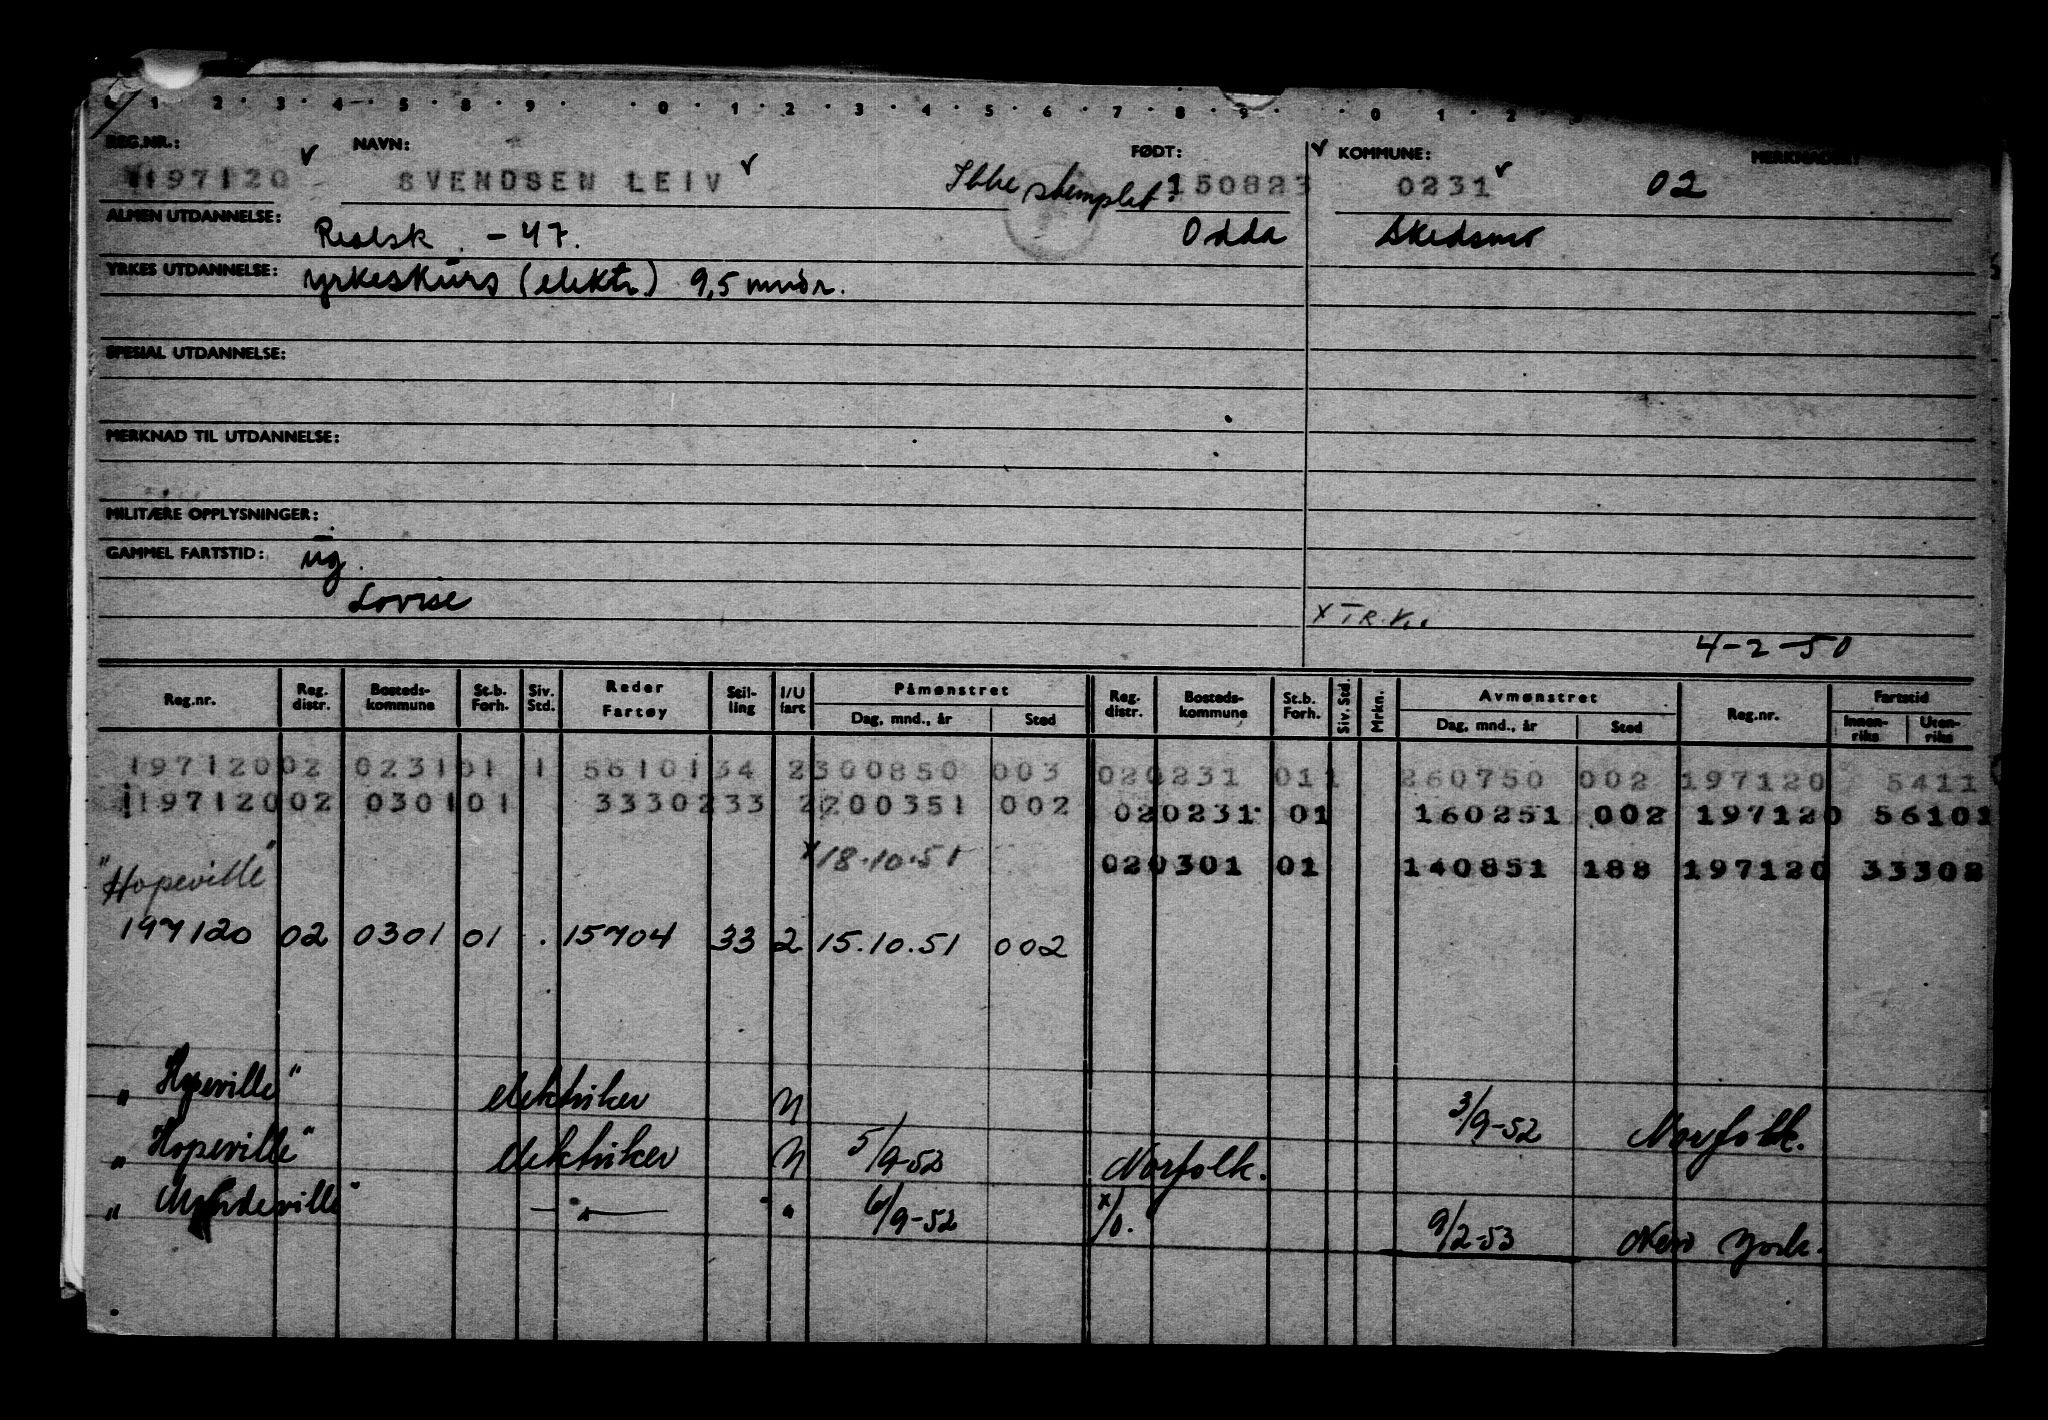 1 · 2 · 3 · 4 · 5 · 8 · 9 · · 0 · 1 · 2 · 3 · 4 · 5 · 6 · 7 · 8 · 9 · · 0 · 1 · 2
REG.NR.: NAVN: FØDT: KOMMUNE:
197120 SVENDSEN LEIV Ikke stemplet! 150823 0231 02
ALMEN UTDANNELSE: Realsk. - 47. Odda Skedsmo
YRKES UTDANNELSE: yrkeskurs (elektr.) 9,5 mndr.
SPESIAL UTDANNELSE:
MERKNAD TIL UTDANNELSE:
MILITÆRE OPPLYSNINGER:
GAMMEL FARTSTID: ug.
Lovise
X TR.V..
4-2-50
Reg.nr. Reg. distr. Bosteds-kommune St.b. Forh. Siv. Std. Reder Fartøy Stil-ling I/U fart Påmønstret Dag, mnd., år Sted Reg. distr. Bosteds-kommune St.b. Forh. Siv. Std. Mrkn. Avmønstret Dag, mnd., år Sted Reg.nr. Fartstid Innen-riks Uten-riks
197120 02 0231 01 1 56101 34 2 300850 003 02 0231 01 1 260750 002 197120 5411
197120 02 0301 01 33302 33 2 200351 002 02 0231 01 160251 002 197120 56101
"Hopeville" x 18.10.51 02 0301 01 140851 188 197120 33302
197120 02 0301 01 . 15704 33 2 15.10.51 002
"Hopeville" elektriker N 3/9-52 Norfolk.
"Hopeville" elektriker N 5/9-52 Norfolk.
6/9-52 x/o. 9/2-53 New York.